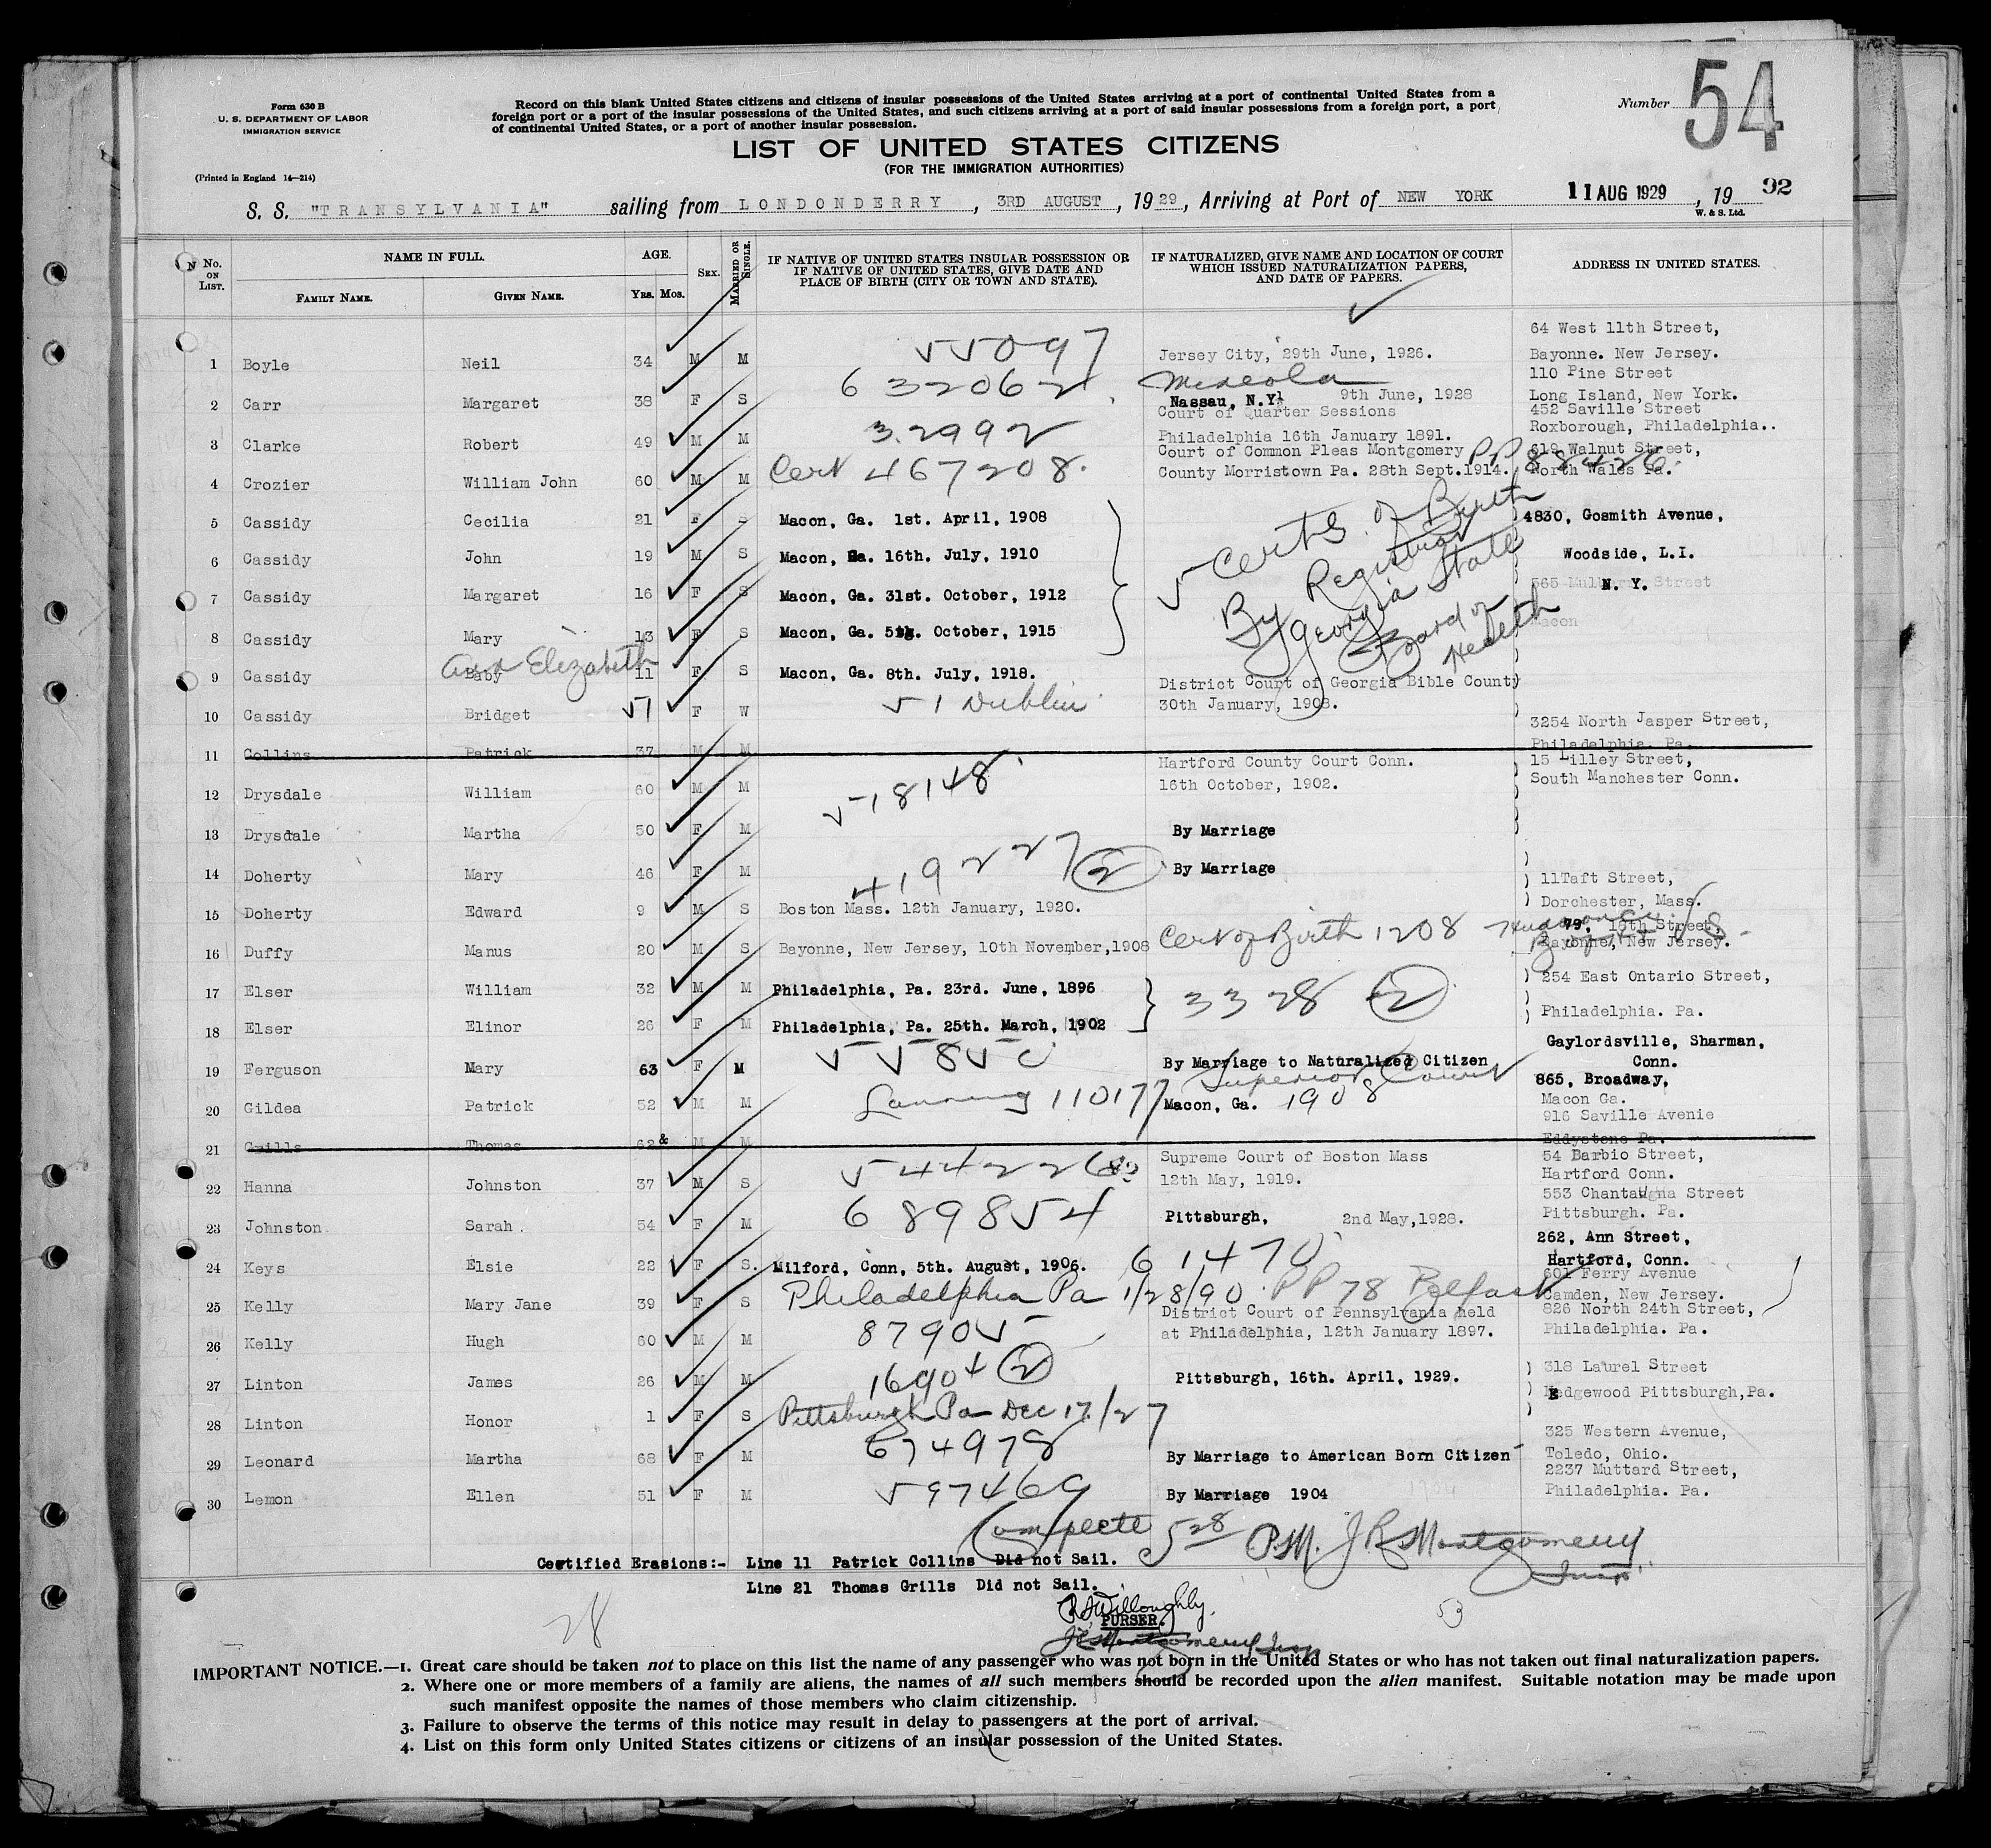 Form 630 B
U. S. DEPARTMENT OF LABOR
IMMIGRATION SERVICE
(Printed in England 14—214)
Record on this blank United States citizens and citizens of insular possessions of the United States arriving at a port of continental United States from a
foreign port or a port of the insular possessions of the United States, and such citizens arriving at a port of said insular possessions from a foreign port, a port
of continental United States, or a port of another insular possession.
Number 54
LIST OF UNITED STATES CITIZENS
(FOR THE IMMIGRATION AUTHORITIES)
S. S. "TRANSYLVANIA" sailing from LONDONDERRY, 3RD AUGUST, 1929, Arriving at Port of NEW YORK 11 AUG 1929, 19 92
W. & S. Ltd.
No. ON LIST. NAME IN FULL. FAMILY NAME. GIVEN NAME. AGE. Yrs. Mos. SEX. MARRIED OR SINGLE. IF NATIVE OF UNITED STATES INSULAR POSSESSION OR IF NATIVE OF UNITED STATES, GIVE DATE AND PLACE OF BIRTH (CITY OR TOWN AND STATE). IF NATURALIZED, GIVE NAME AND LOCATION OF COURT WHICH ISSUED NATURALIZATION PAPERS, AND DATE OF PAPERS. ADDRESS IN UNITED STATES.
64 West 11th Street,
1 Boyle Neil 34 M M 55097 Jersey City, 29th June, 1926. Bayonne. New Jersey.
110 Pine Street
2 Carr Margaret 38 F S 632062 Mineola Nassau, N.Y. 9th June, 1928 Long Island, New York.
Court of Quarter Sessions 452 Saville Street
3 Clarke Robert 49 M M 32992 Philadelphia 16th January 1891. Roxborough, Philadelphia..
Court of Common Pleas Montgomery PP 88426 619 Walnut Street,
4 Crozier William John 60 M M Cert 467208. County Morristown Pa. 28th Sept.1914. North Wales Pa.
5 Cassidy Cecilia 21 F S Macon, Ga. 1st. April, 1908 Certs. of Birth 4830, Gosmith Avenue,
6 Cassidy John 19 M S Macon, Ga. 16th. July, 1910 By Registrar Woodside, L.I.
7 Cassidy Margaret 16 F S Macon, Ga. 31st. October, 1912 Georgia State N. Y.
8 Cassidy Mary 13 F S Macon, Ga. 5th. October, 1915 Board of Macon
9 Cassidy Baby Elizabeth 11 F S Macon, Ga. 8th. July, 1918. Health
District Court of Georgia Bible County
10 Cassidy Bridget 51 F W 51 Dublin 30th January, 1908.
3254 North Jasper Street,
11 Collins Patrick 37 M M Philadelphia. Pa.
Hartford County Court Conn. 15 Lilley Street,
12 Drysdale William 60 M M 518148 16th October, 1902. South Manchester Conn.
13 Drysdale Martha 50 F M By Marriage
14 Doherty Mary 46 F M 419227 (2) By Marriage 11Taft Street,
15 Doherty Edward 9 M S Boston Mass. 12th January, 1920. Dorchester, Mass.
79, 16th Street,
16 Duffy Manus 20 M S Bayonne, New Jersey, 10th November,1908 Cert of Birth 1208 Bayonne, New Jersey.
17 Elser William 32 M M Philadelphia, Pa. 23rd. June, 1896 3328 (2) 254 East Ontario Street,
18 Elser Elinor 26 F M Philadelphia, Pa. 25th. March, 1902 Philadelphia. Pa.
Gaylordsville, Sharman,
19 Ferguson Mary 63 F M By Marriage to Naturalized Citizen Conn.
Superior Court 865, Broadway,
20 Gildea Patrick 52 M M 110177 Macon, Ga. 1908 Macon Ga.
916 Saville Avenie
21 Grills Thomas 62 & M M Eddystone Pa.
Supreme Court of Boston Mass 54 Barbio Street,
22 Hanna Johnston 37 M S 12th May, 1919. Hartford Conn.
553 Chantauqua Street
23 Johnston Sarah 54 F M 689854 Pittsburgh, 2nd May,1928. Pittsburgh. Pa.
262, Ann Street,
24 Keys Elsie 22 F S. Milford, Conn, 5th. August, 1906. 61470 Hartford, Conn.
601 Ferry Avenue
25 Kelly Mary Jane 39 F S Philadelphia Pa 1/28/90 PP 78 Belfast Camden, New Jersey.
District Court of Pennsylvania held 826 North 24th Street,
26 Kelly Hugh 60 M M 87905 at Philadelphia, 12th January 1897. Philadelphia. Pa.
27 Linton James 26 M M 16904 (2) Pittsburgh, 16th. April, 1929. 318 Laurel Street
28 Linton Honor 1 F S Pittsburgh Pa Dec 17/27 Edgewood Pittsburgh,Pa.
325 Western Avenue,
29 Leonard Martha 68 F M 674978 By Marriage to American Born Citizen Toledo, Ohio.
2237 Muttard Street,
30 Lemon Ellen 51 F M 597469 By Marriage 1904 Philadelphia. Pa.
Complete 528 P.M. J R Montgomery Insp.
Certified Erasions:- Line 11 Patrick Collins Did not Sail.
Line 21 Thomas Grills Did not Sail.
28
Willoughby.
PURSER.
53
J R Montgomery Insp
IMPORTANT NOTICE.—1. Great care should be taken not to place on this list the name of any passenger who was not born in the United States or who has not taken out final naturalization papers.
2. Where one or more members of a family are aliens, the names of all such members should be recorded upon the alien manifest. Suitable notation may be made upon
such manifest opposite the names of those members who claim citizenship.
3. Failure to observe the terms of this notice may result in delay to passengers at the port of arrival.
4. List on this form only United States citizens or citizens of an insular possession of the United States.